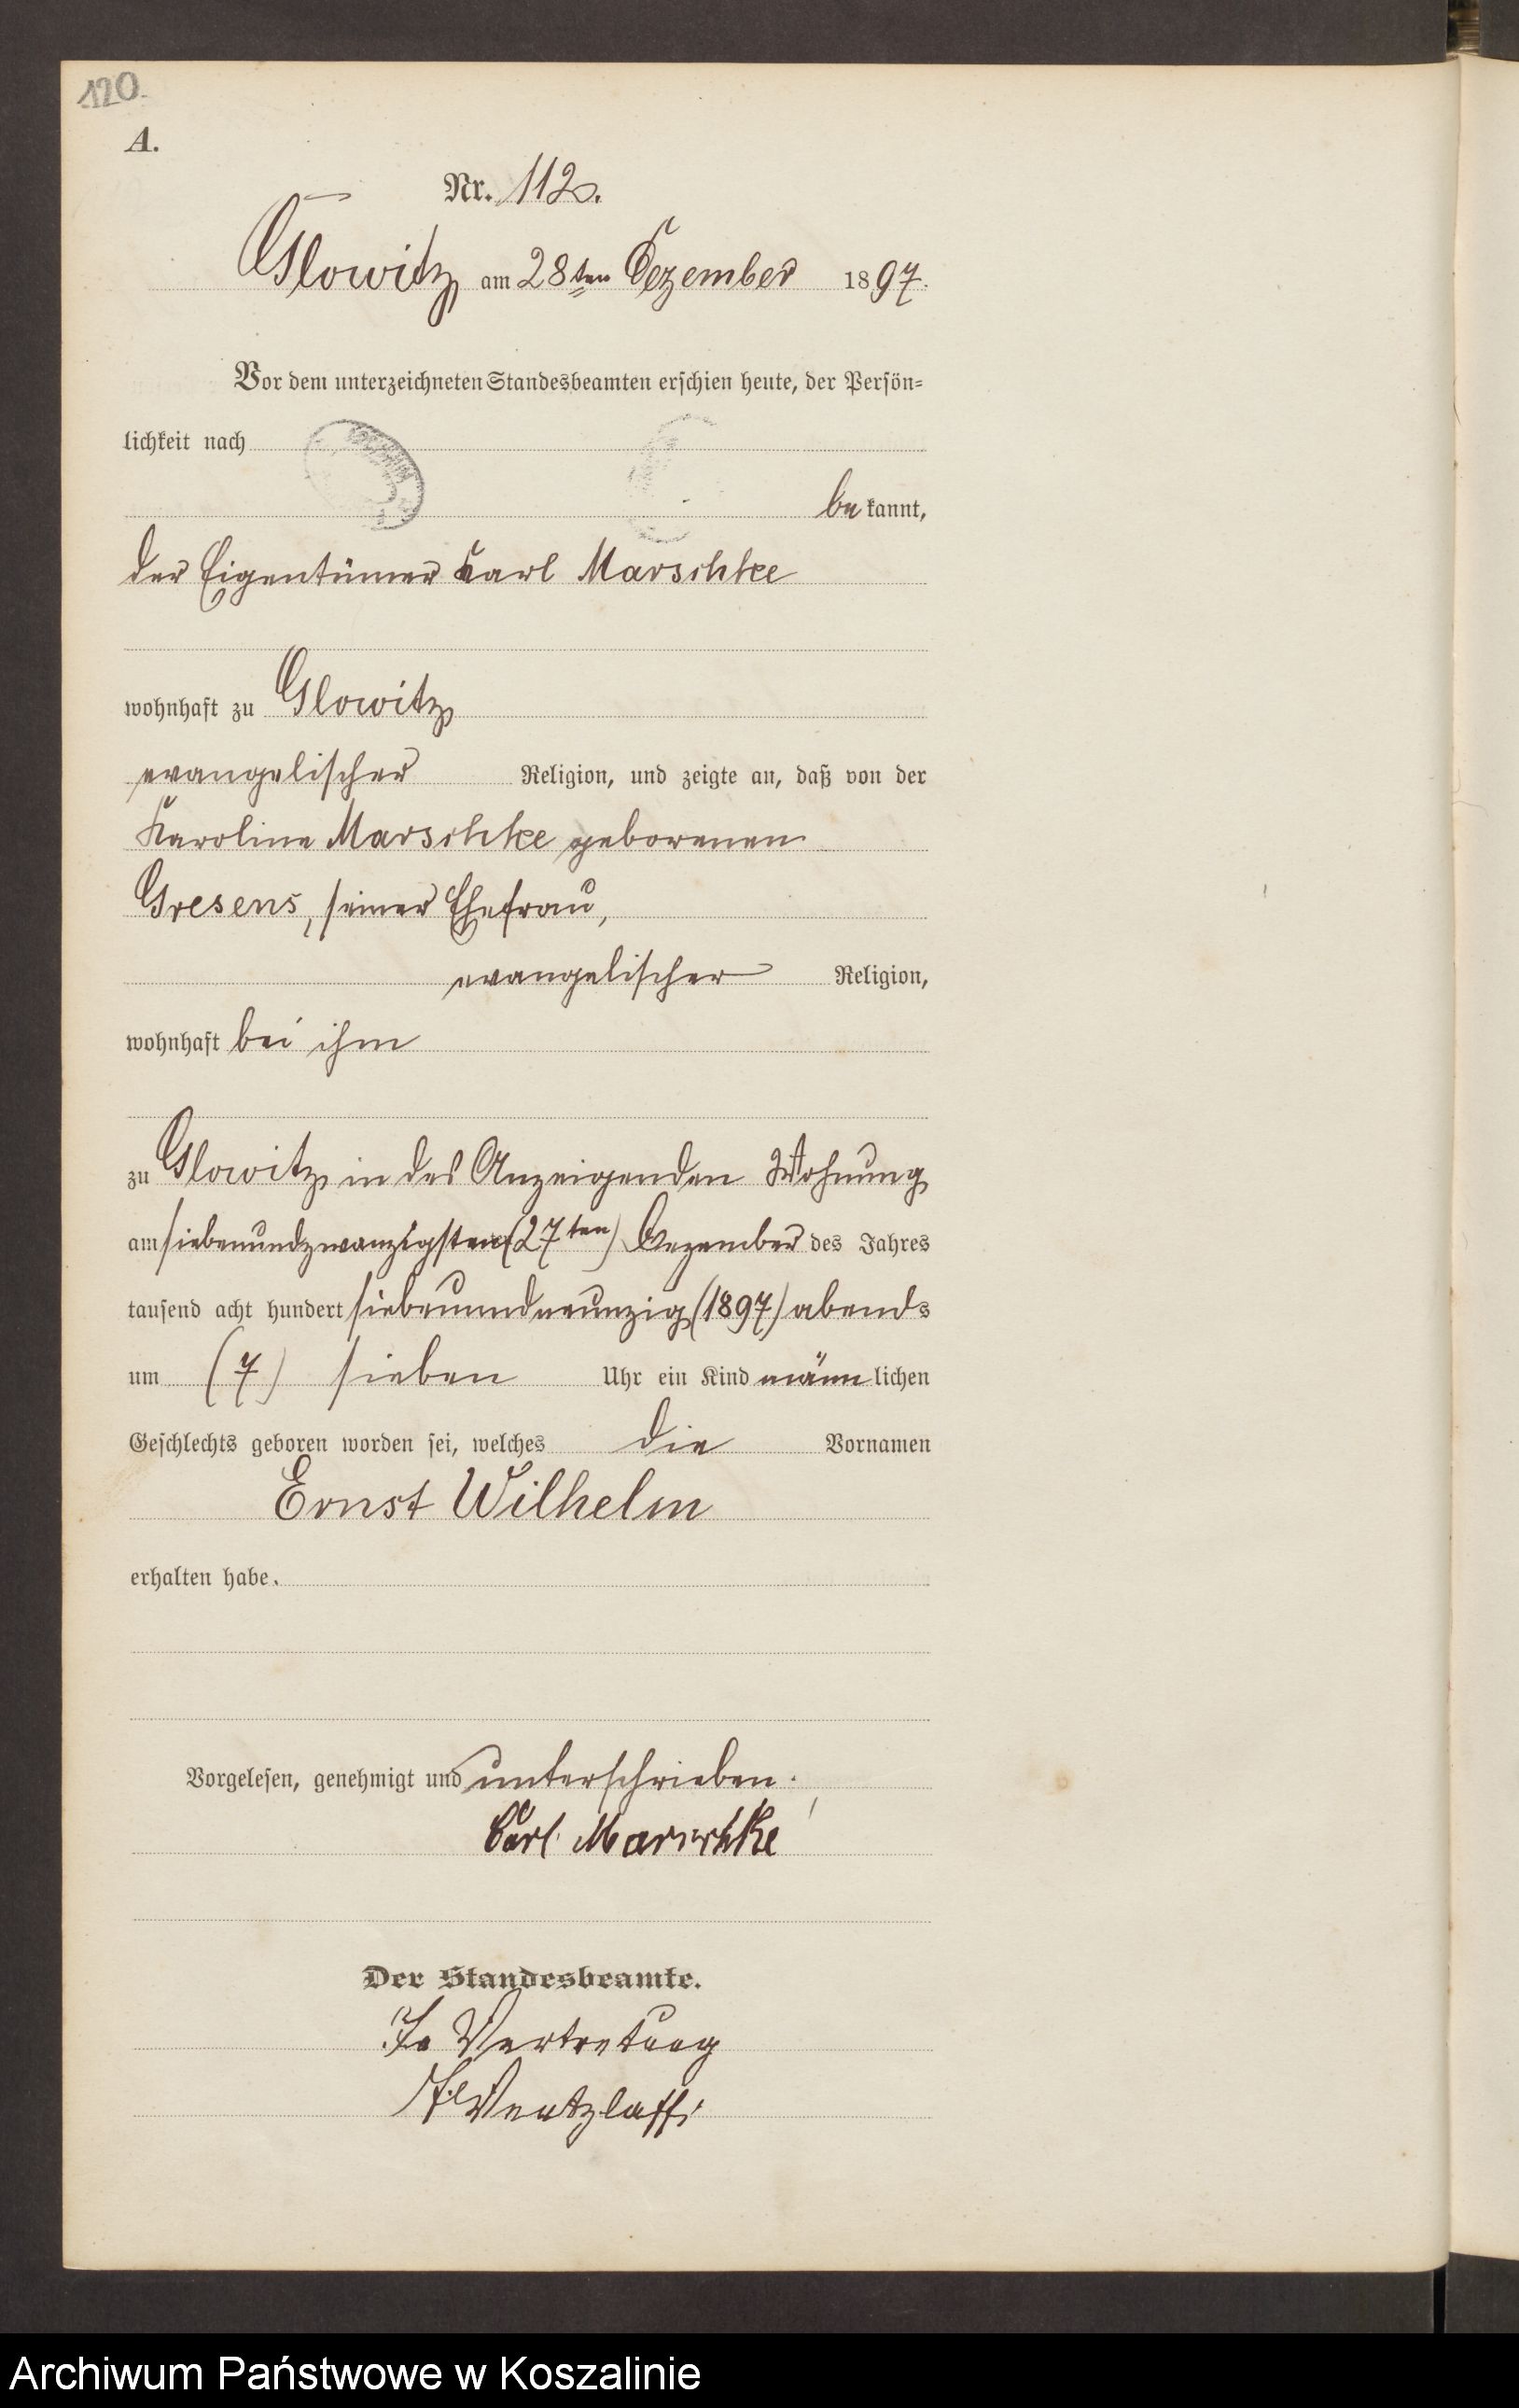 120.
A.
Nr. 112.
Glowitz am 28ten Dezember 1897.
Vor dem unterzeichneten Standesbeamten erschien heute, der Persön-
lichkeit nach
bekannt,
der Eigentümer Karl Marschke
wohnhaft zu Glowitz
evangelischer Religion, und zeigte an, daß von der
Karoline Marschke geborenen
Gresens, seiner Ehefrau,
evangelischer Religion,
wohnhaft bei ihm
zu Glowitz in des Anzeigenden Wohnung
am siebenundzwanzigsten (27ten) Dezember des Jahres
tausend acht hundert siebenundneunzig (1897) abends
um (7) sieben Uhr ein Kind männlichen
Geschlechts geboren worden sei, welches die Vornamen
Ernst Wilhelm
erhalten habe.
Vorgelesen, genehmigt und unterschrieben.
Carl Marschke
Der Standesbeamte.
In Vertretung
Wentzlaff
Archiwum Państwowe w Koszalinie